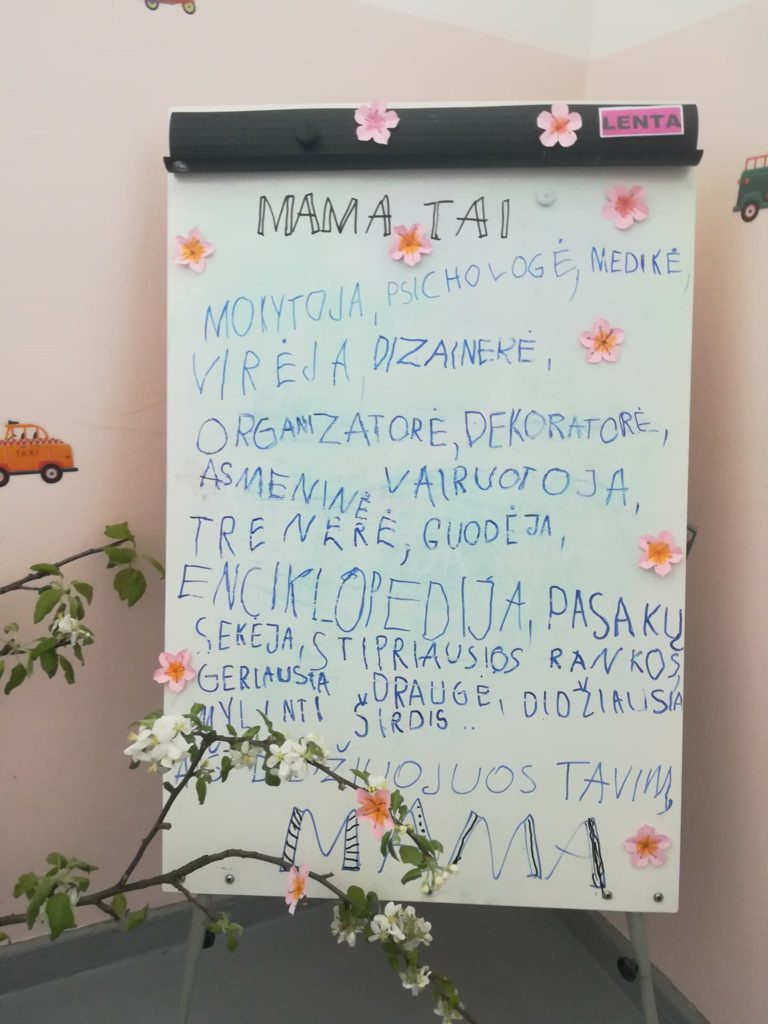 LENTA
MAMA TAI
MOKYTOJA, PSICHOLOGĖ, MEDIKĖ,
VIRĖJA, DIZAINERĖ,
ORGANIZATORĖ, DEKORATORĖ,
ASMENINĖ VAIRUOTOJA,
TRENERĖ, GUODĖJA,
ENCIKLOPEDIJA, PASAKŲ
SEKĖJA, STIPRIAUSIOS RANKOS,
GERIAUSIA DRAUGĖ, DIDŽIAUSIA
MYLINTI ŠIRDIS..
AŠ DIDŽIUOJUOS TAVIMI,
MAMA
TAXI